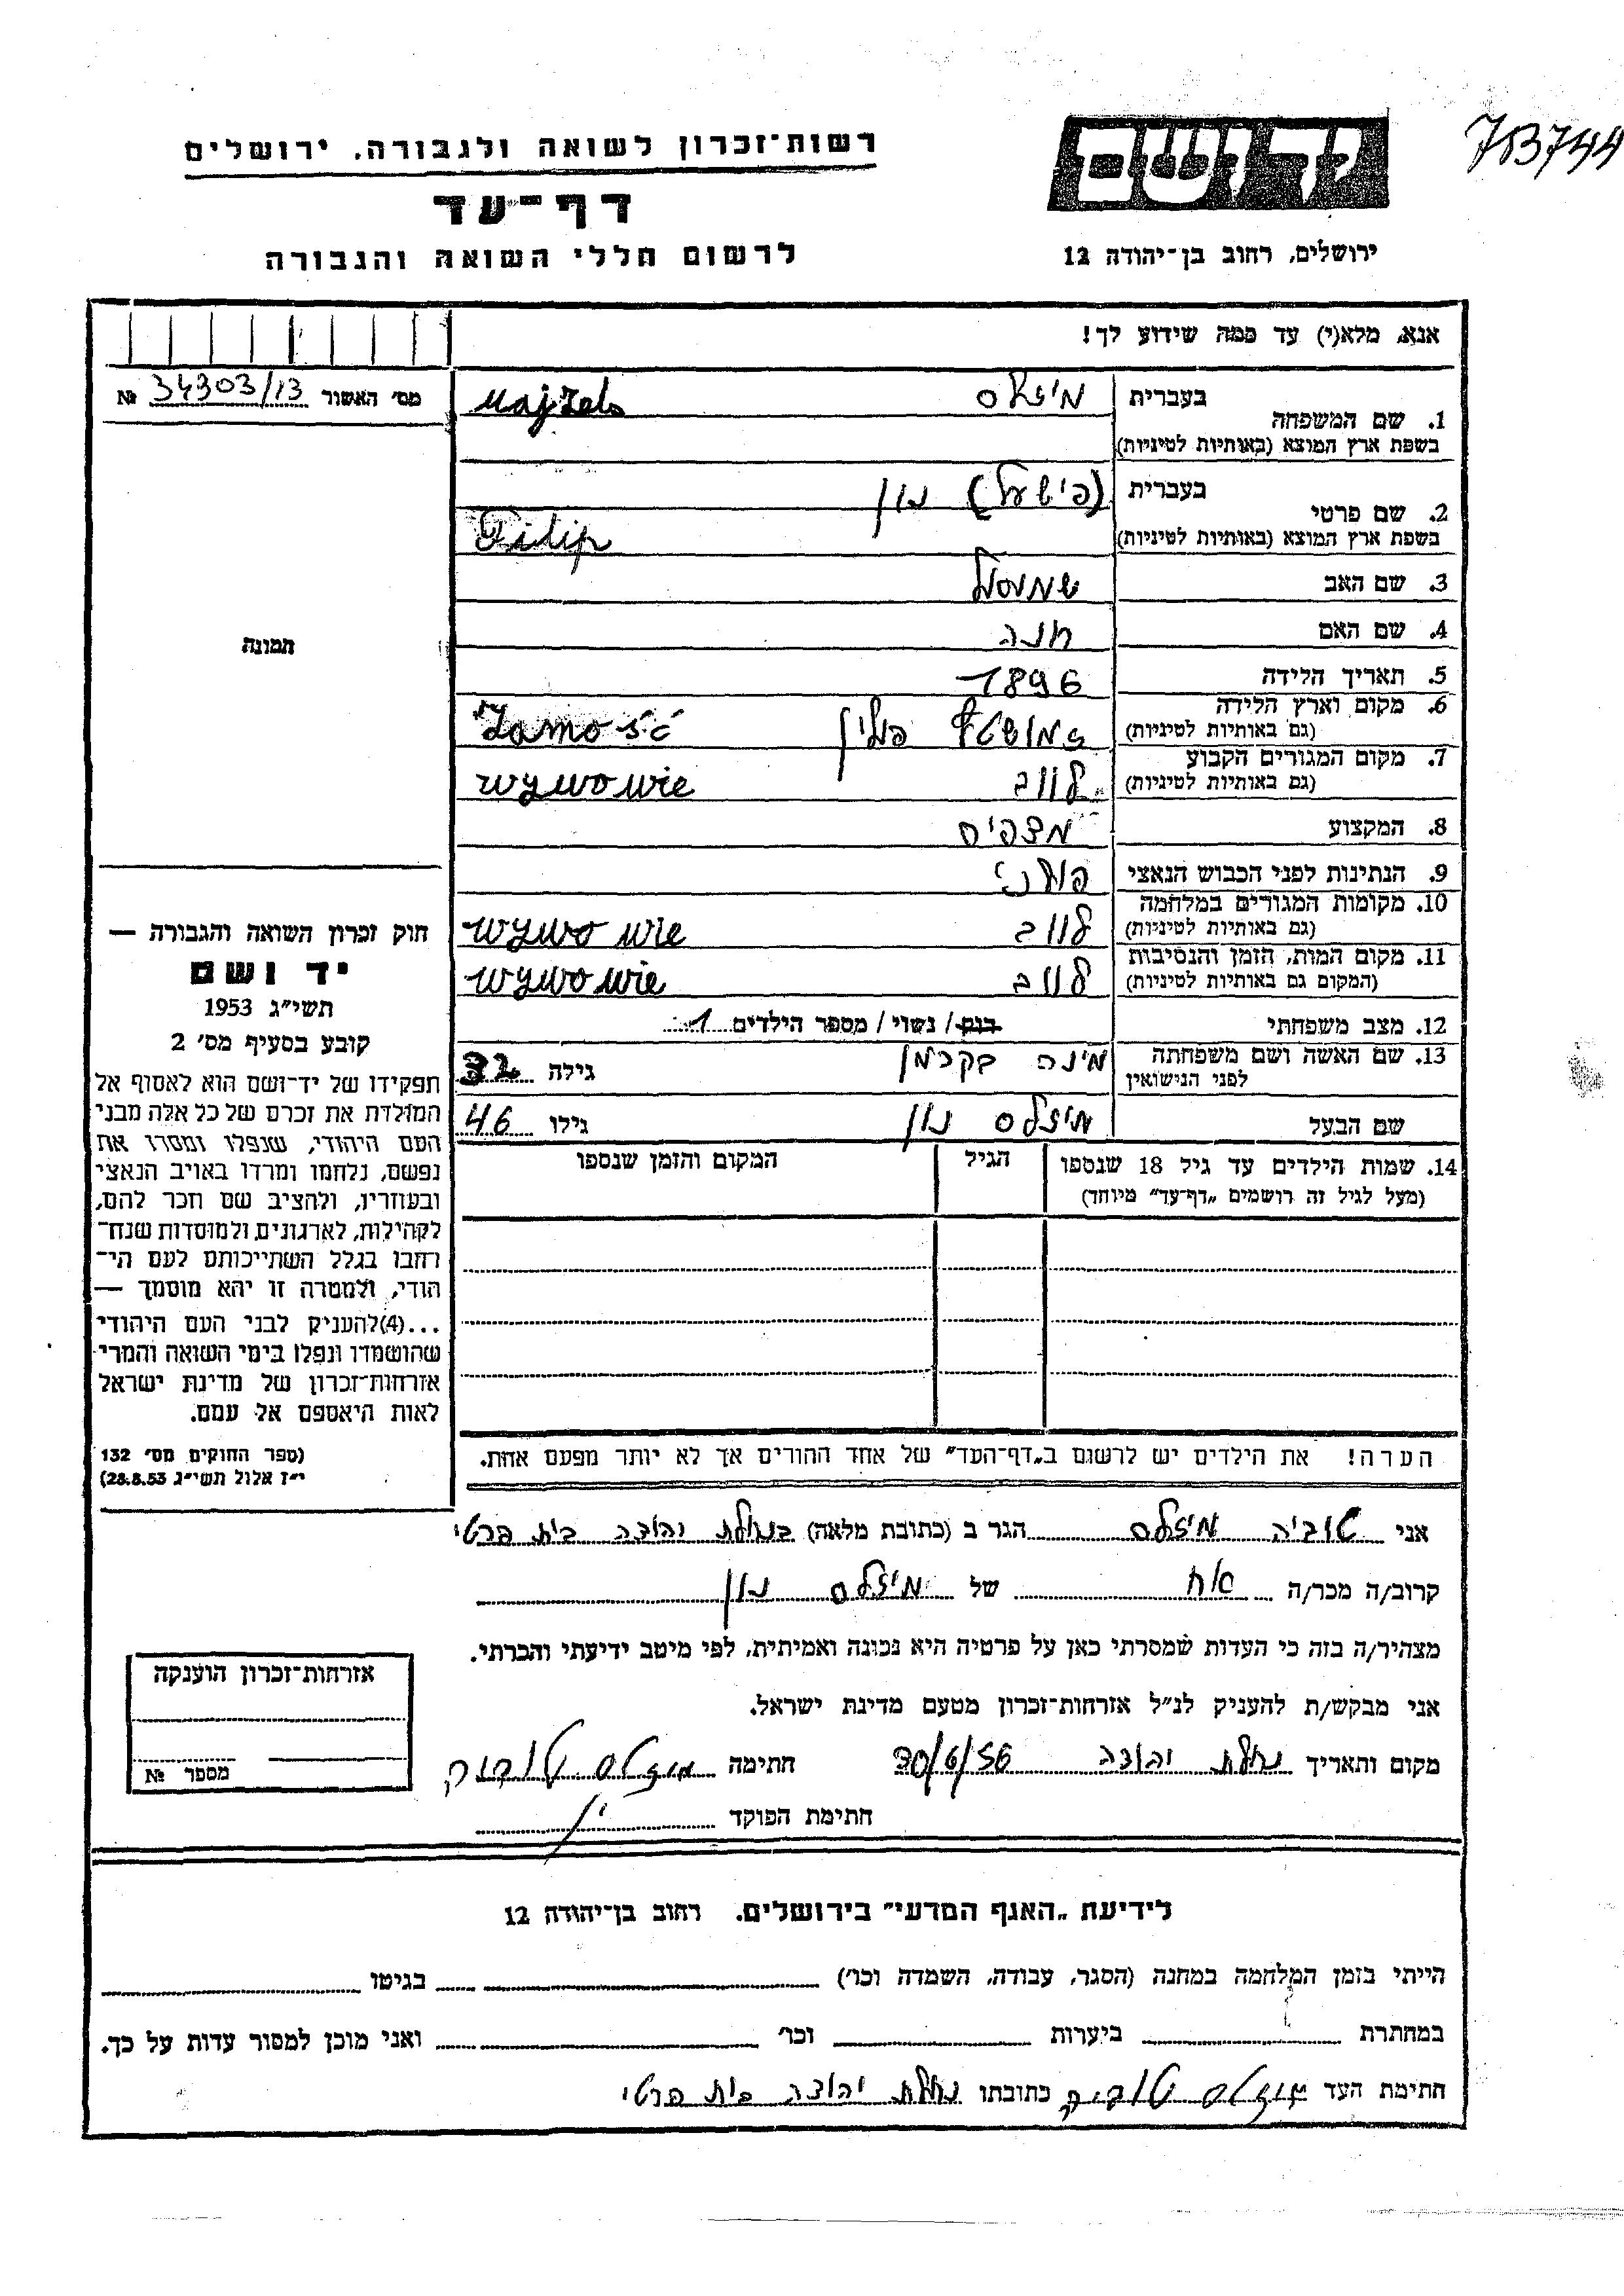 רשות־זכרון לשואה ולגבורה, ירושלים
דף־עד
לרשום חללי השואה והגבורה
יד ושם
ירושלים, רחוב בן־יהודה 12
713744
אנא, מלא(י) עד כמה שידוע לך!
מס׳ האשור № 34303/13
1. שם המשפחה
בעברית מיזלס Majzels
בשפת ארץ המוצא (באותיות לטיניות)
2. שם פרטי
בעברית (פישעל) נון
בשפת ארץ המוצא (באותיות לטיניות) Filip
3. שם האב שמואל
4. שם האם חנה
5. תאריך הלידה 1896
6. מקום וארץ הלידה
(גם באותיות לטיניות) פולין Zamość
7. מקום המגורים הקבוע
(גם באותיות לטיניות) לווב wywowie
8. המקצוע
9. הנתינות לפני הכבוש הנאצי פולני
10. מקומות המגורים במלחמה
(גם באותיות לטיניות) לווב wywowie
11. מקום המות, הזמן והנסיבות
(המקום גם באותיות לטיניות) לווב wywowie
12. מצב משפחתי רוק / נשוי / מספר הילדים 1
13. שם האשה ושם משפחתה
לפני הנישואין מינה בקרמן גילה 32
שם הבעל מיזלס נון גילו 46
14. שמות הילדים עד גיל 18 שנספו הגיל המקום והזמן שנספו
(מעל לגיל זה רושמים „דף־עד״ מיוחד)
הערה! את הילדים יש לרשום ב„דף־העד״ של אחד ההורים אך לא יותר מפעם אחת.
תמונה
חוק זכרון השואה והגבורה —
יד ושם
תשי״ג 1953
קובע בסעיף מס׳ 2
תפקידו של יד־ושם הוא לאסוף אל
המולדת את זכרם של כל אלה מבני
העם היהודי, שנפלו ומסרו את
נפשם, נלחמו ומרדו באויב הנאצי
ובעוזריו, ולהציב שם וזכר להם,
לקהילות, לארגונים ולמוסדות שנח־
רבו בגלל השתייכותם לעם הי־
הודי, ולמטרה זו יהא מוסמך —
...(4) להעניק לבני העם היהודי
שהושמדו ונפלו בימי השואה והמרי
אזרחות־זכרון של מדינת ישראל
לאות היאספם אל עמם.
(ספר החוקים מס׳ 132
י״ז אלול תשי״ג 28.8.53)
אני טוביה מיזלס הגר ב (כתובת מלאה) בנחלת יהודה בית פרטי
קרוב/ה מכר/ה אח של מיזלס נון
מצהיר/ה בזה כי העדות שמסרתי כאן על פרטיה היא נכונה ואמיתית, לפי מיטב ידיעתי והכרתי.
אני מבקש/ת להעניק לנ״ל אזרחות־זכרון מטעם מדינת ישראל.
מקום ותאריך נחלת יהודה 30/6/56 חתימה מיזלס
חתימת הפוקד
אזרחות־זכרון הוענקה
מספר №
לידיעת „האגף המדעי״ בירושלים, רחוב בן־יהודה 12
הייתי בזמן המלחמה במחנה (הסגר, עבודה, השמדה וכו׳) בגיטו
במחתרת ביערות וכו׳ ואני מוכן למסור עדות על כך.
חתימת העד מיזלס כתובתו נחלת יהודה בית פרטי